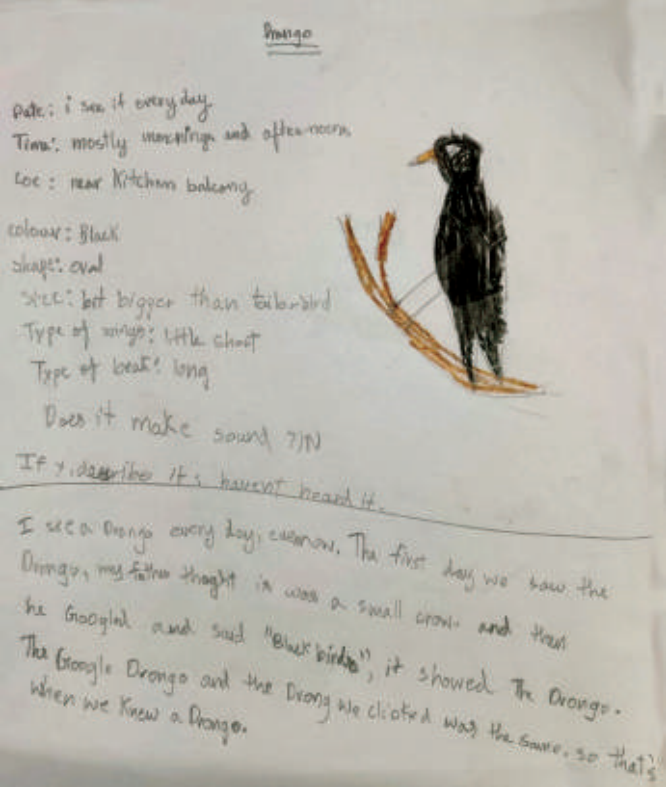 Drongo
Date: i see it everyday
Time: mostly mornings and afternoons
Loc: near Kitchen balcony
colour: Black
shape: oval
Size: bit bigger than tailorbird
Type of wings: little short
Type of beak: long
Does it make sound Y/N
If y, describe it's havent heard it.
I see a Drongo every day, The first day we saw the
Drongo, my father thoght is was a small crow. and then
he Googled and said "Black birds", it showed The Drongo.
The Google Drongo and the Drong we clicked was the same. so that's
when we knew a Drongo.